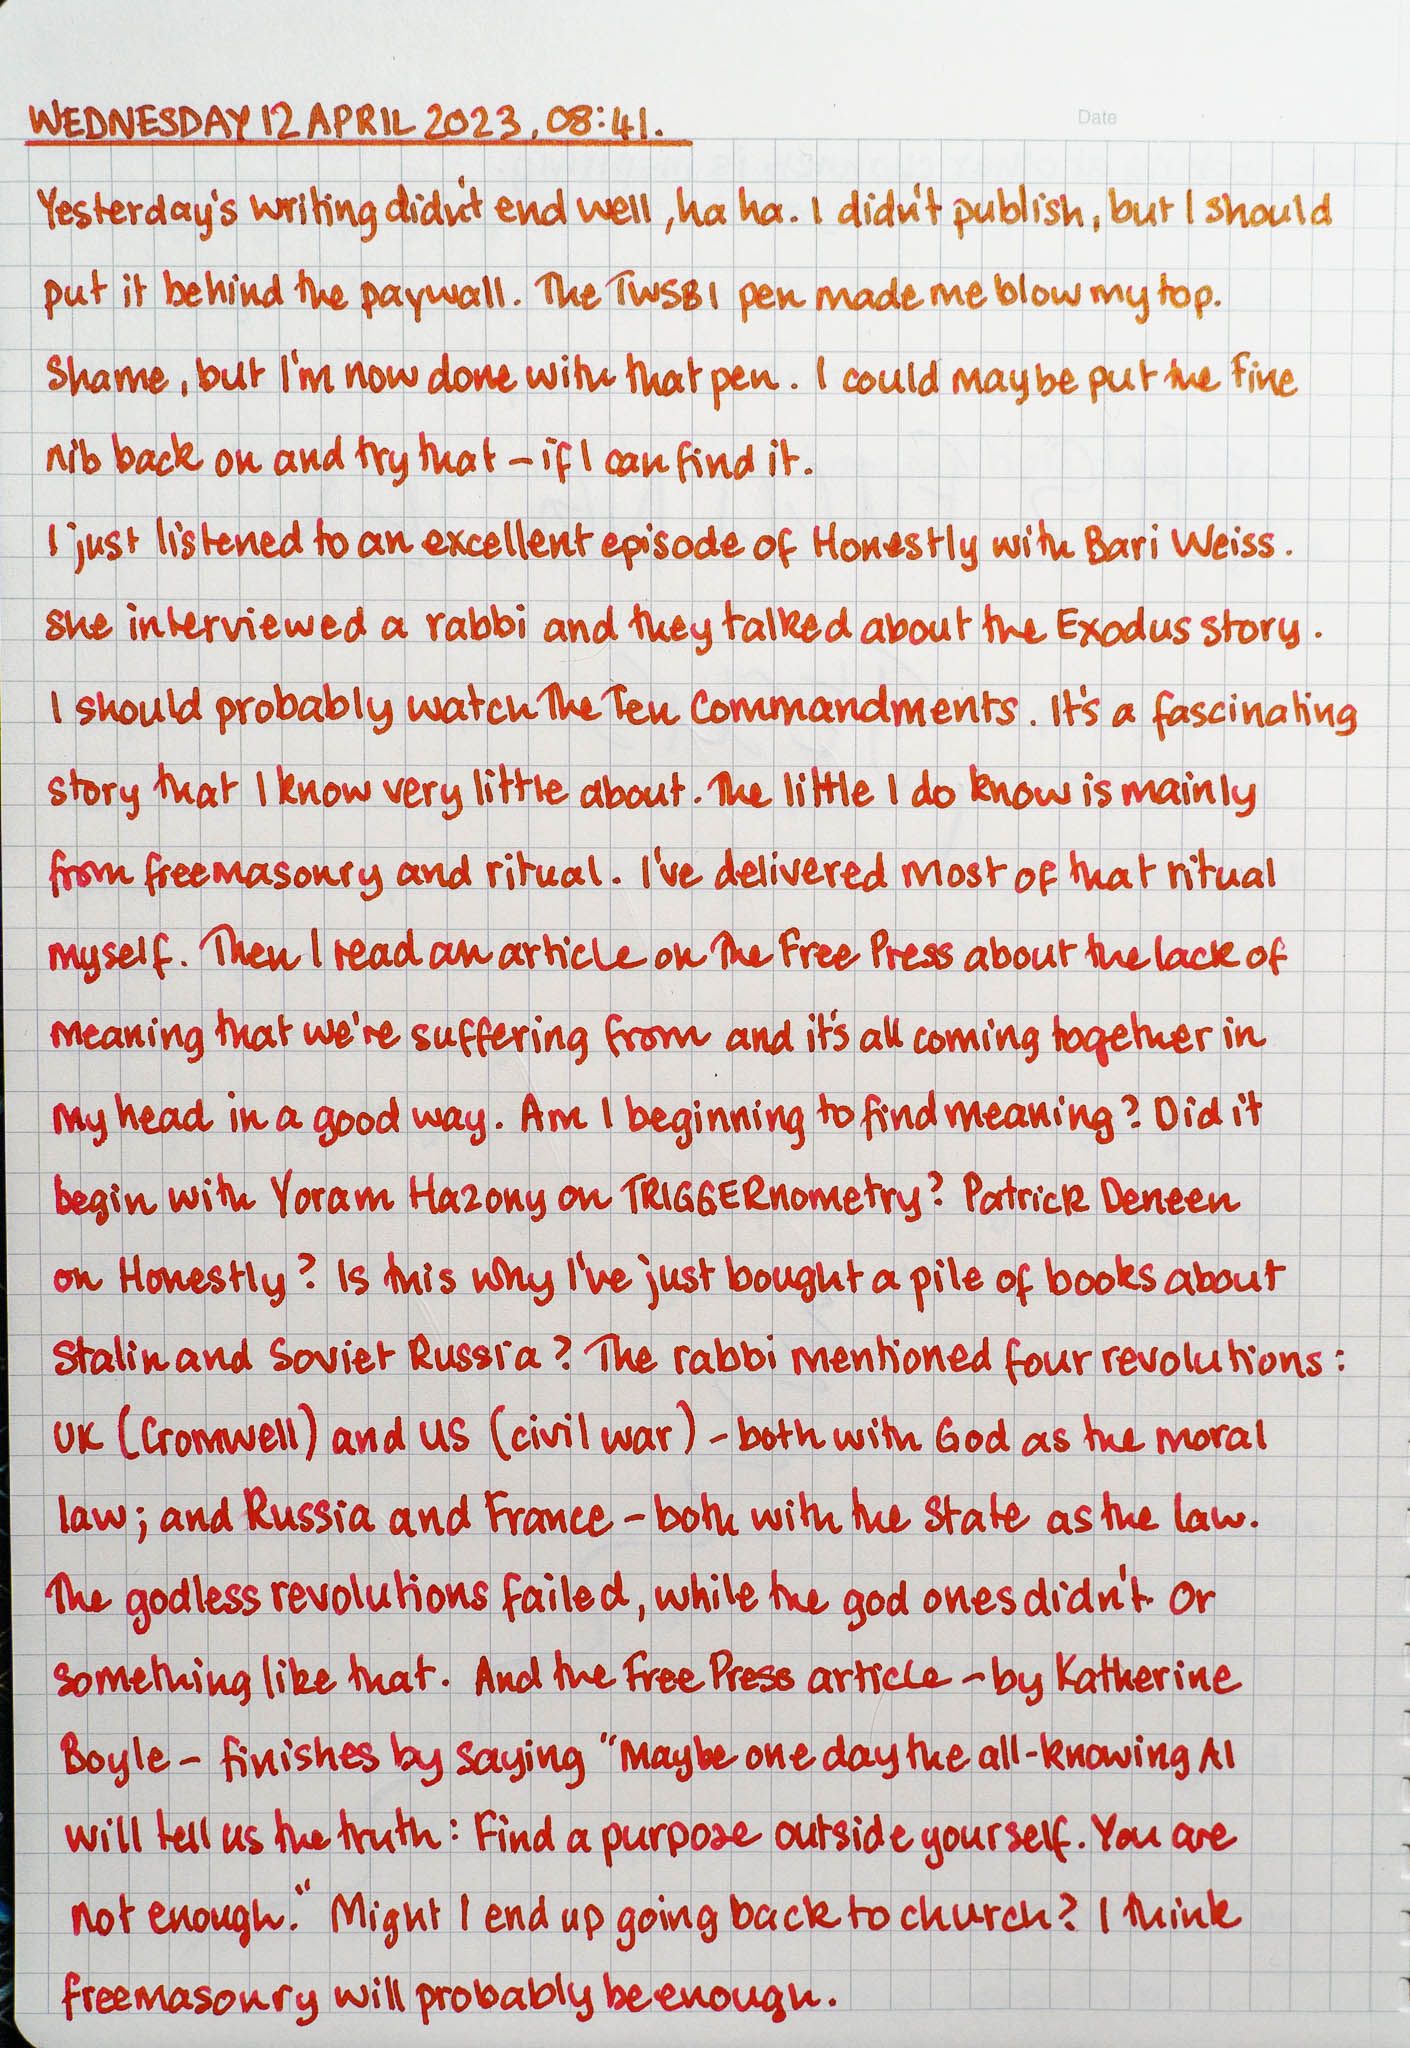 WEDNESDAY 12 APRIL 2023, 08:41.
Date
Yesterday's writing didn't end well, ha ha. I didn't publish, but I should
put it behind the paywall. The TWSBI pen made me blow my top.
Shame, but I'm now done with that pen. I could maybe put the fine
nib back on and try that – if I can find it.
I just listened to an excellent episode of Honestly with Bari Weiss.
She interviewed a rabbi and they talked about the Exodus story.
I should probably watch The Ten Commandments. It's a fascinating
story that I know very little about. The little I do know is mainly
from freemasonry and ritual. I've delivered most of that ritual
myself. Then I read an article on The Free Press about the lack of
meaning that we're suffering from and it's all coming together in
my head in a good way. Am I beginning to find meaning? Did it
begin with Yoram Hazony on TRIGGERnometry? Patrick Deneen
on Honestly? Is this why I've just bought a pile of books about
Stalin and Soviet Russia? The rabbi mentioned four revolutions:
UK (Cromwell) and US (civil war) – both with God as the moral
law; and Russia and France – both with the State as the law.
The godless revolutions failed, while the god ones didn't. Or
something like that. And the Free Press article – by Katherine
Boyle – finishes by saying "Maybe one day the all-knowing AI
will tell us the truth: Find a purpose outside yourself. You are
not enough." Might I end up going back to church? I think
freemasonry will probably be enough.